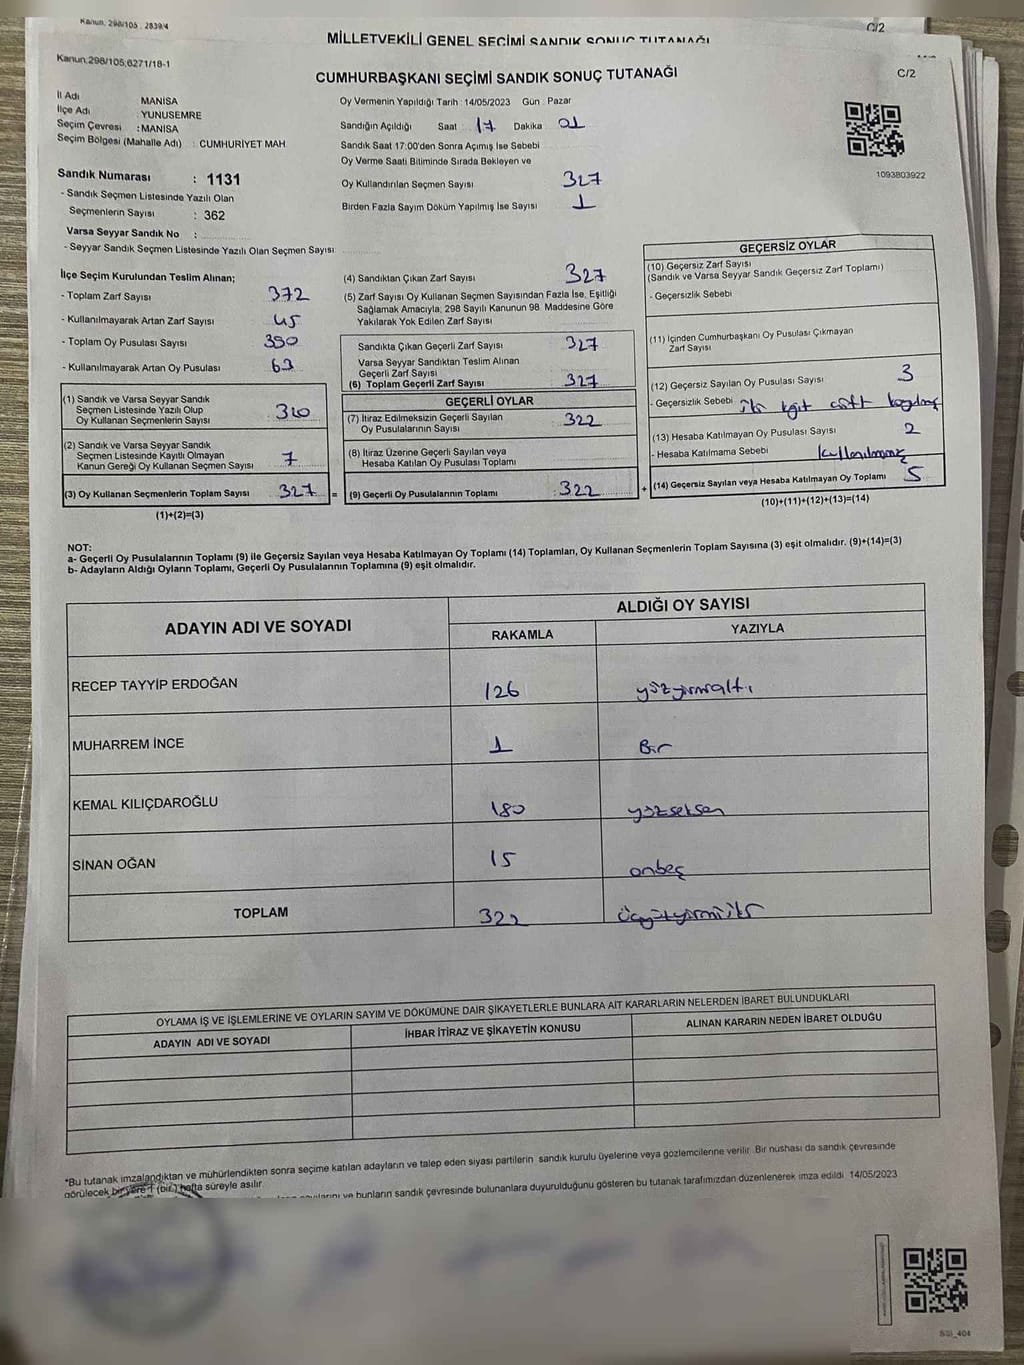 Kanun, 298/105 , 2839/4
C/2
MİLLETVEKİLİ GENEL SEÇİMİ SANDIK SONUÇ TUTANAĞI
Kanun;298/105;6271/18-1
CUMHURBAŞKANI SEÇİMİ SANDIK SONUÇ TUTANAĞI
C/2
İl Adı MANİSA
İlçe Adı YUNUSEMRE
Seçim Çevresi : MANİSA
Seçim Bölgesi (Mahalle Adı) : CUMHURİYET MAH
Sandık Numarası : 1131
- Sandık Seçmen Listesinde Yazılı Olan
Seçmenlerin Sayısı : 362
Varsa Seyyar Sandık No :
- Seyyar Sandık Seçmen Listesinde Yazılı Olan Seçmen Sayısı:
Oy Vermenin Yapıldığı Tarih : 14/05/2023 Gün : Pazar
Sandığın Açıldığı Saat : 17 Dakika 01
Sandık Saat 17:00'den Sonra Açımış İse Sebebi
Oy Verme Saati Bitiminde Sırada Bekleyen ve
Oy Kullandırılan Seçmen Sayısı 327
Birden Fazla Sayım Döküm Yapılmış İse Sayısı 1
1093803922
İlçe Seçim Kurulundan Teslim Alınan;
- Toplam Zarf Sayısı 372
- Kullanılmayarak Artan Zarf Sayısı 45
- Toplam Oy Pusulası Sayısı 390
- Kullanılmayarak Artan Oy Pusulası 63
(1) Sandık ve Varsa Seyyar Sandık
Seçmen Listesinde Yazılı Olup
Oy Kullanan Seçmenlerin Sayısı 320
(2) Sandık ve Varsa Seyyar Sandık
Seçmen Listesinde Kayıtlı Olmayan
Kanun Gereği Oy Kullanan Seçmen Sayısı 7
(3) Oy Kullanan Seçmenlerin Toplam Sayısı 327 =
(1)+(2)=(3)
(4) Sandıktan Çıkan Zarf Sayısı 327
(5) Zarf Sayısı Oy Kullanan Seçmen Sayısından Fazla İse, Eşitliği
Sağlamak Amacıyla, 298 Sayılı Kanunun 98. Maddesine Göre
Yakılarak Yok Edilen Zarf Sayısı
Sandıkta Çıkan Geçerli Zarf Sayısı 327
Varsa Seyyar Sandıktan Teslim Alınan
Geçerli Zarf Sayısı
(6) Toplam Geçerli Zarf Sayısı 327
GEÇERLİ OYLAR
(7) İtiraz Edilmeksizin Geçerli Sayılan
Oy Pusulalarının Sayısı 322
(8) İtiraz Üzerine Geçerli Sayılan veya
Hesaba Katılan Oy Pusulası Toplamı
(9) Geçerli Oy Pusulalarının Toplamı : 322 +
GEÇERSİZ OYLAR
(10) Geçersiz Zarf Sayısı
(Sandık ve Varsa Seyyar Sandık Geçersiz Zarf Toplamı)
- Geçersizlik Sebebi
(11) İçinden Cumhurbaşkanı Oy Pusulası Çıkmayan
Zarf Sayısı
(12) Geçersiz Sayılan Oy Pusulası Sayısı 3
- Geçersizlik Sebebi iki kğıt çift
(13) Hesaba Katılmayan Oy Pusulası Sayısı 2
- Hesaba Katılmama Sebebi kullanılmamış
(14) Geçersiz Sayılan veya Hesaba Katılmayan Oy Toplamı 5
(10)+(11)+(12)+(13)=(14)
NOT:
a- Geçerli Oy Pusulalarının Toplamı (9) ile Geçersiz Sayılan veya Hesaba Katılmayan Oy Toplamı (14) Toplamları, Oy Kullanan Seçmenlerin Toplam Sayısına (3) eşit olmalıdır. (9)+(14)=(3)
b- Adayların Aldığı Oyların Toplamı, Geçerli Oy Pusulalarının Toplamına (9) eşit olmalıdır.
ADAYIN ADI VE SOYADI ALDIĞI OY SAYISI
RAKAMLA YAZIYLA
RECEP TAYYİP ERDOĞAN 126 yüzyirmialtı
MUHARREM İNCE 1 Bir
KEMAL KILIÇDAROĞLU 180 yüzseksen
SİNAN OĞAN 15 onbeş
TOPLAM 322 Üçyüzyirmiiki
OYLAMA İŞ VE İŞLEMLERİNE VE OYLARIN SAYIM VE DÖKÜMÜNE DAİR ŞİKAYETLERLE BUNLARA AİT KARARLARIN NELERDEN İBARET BULUNDUKLARI
ADAYIN ADI VE SOYADI İHBAR İTİRAZ VE ŞİKAYETİN KONUSU ALINAN KARARIN NEDEN İBARET OLDUĞU
*Bu tutanak imzalandıktan ve mühürlendikten sonra seçime katılan adayların ve talep eden siyası partilerin sandık kurulu üyelerine veya gözlemcilerine verilir. Bir nushası da sandık çevresinde
görülecek bir yere 1 (bir) hafta süreyle asılır.
ve bunların sandık çevresinde bulunanlara duyurulduğunu gösteren bu tutanak tarafımızdan düzenlenerek imza edildi 14/05/2023
SSI_404